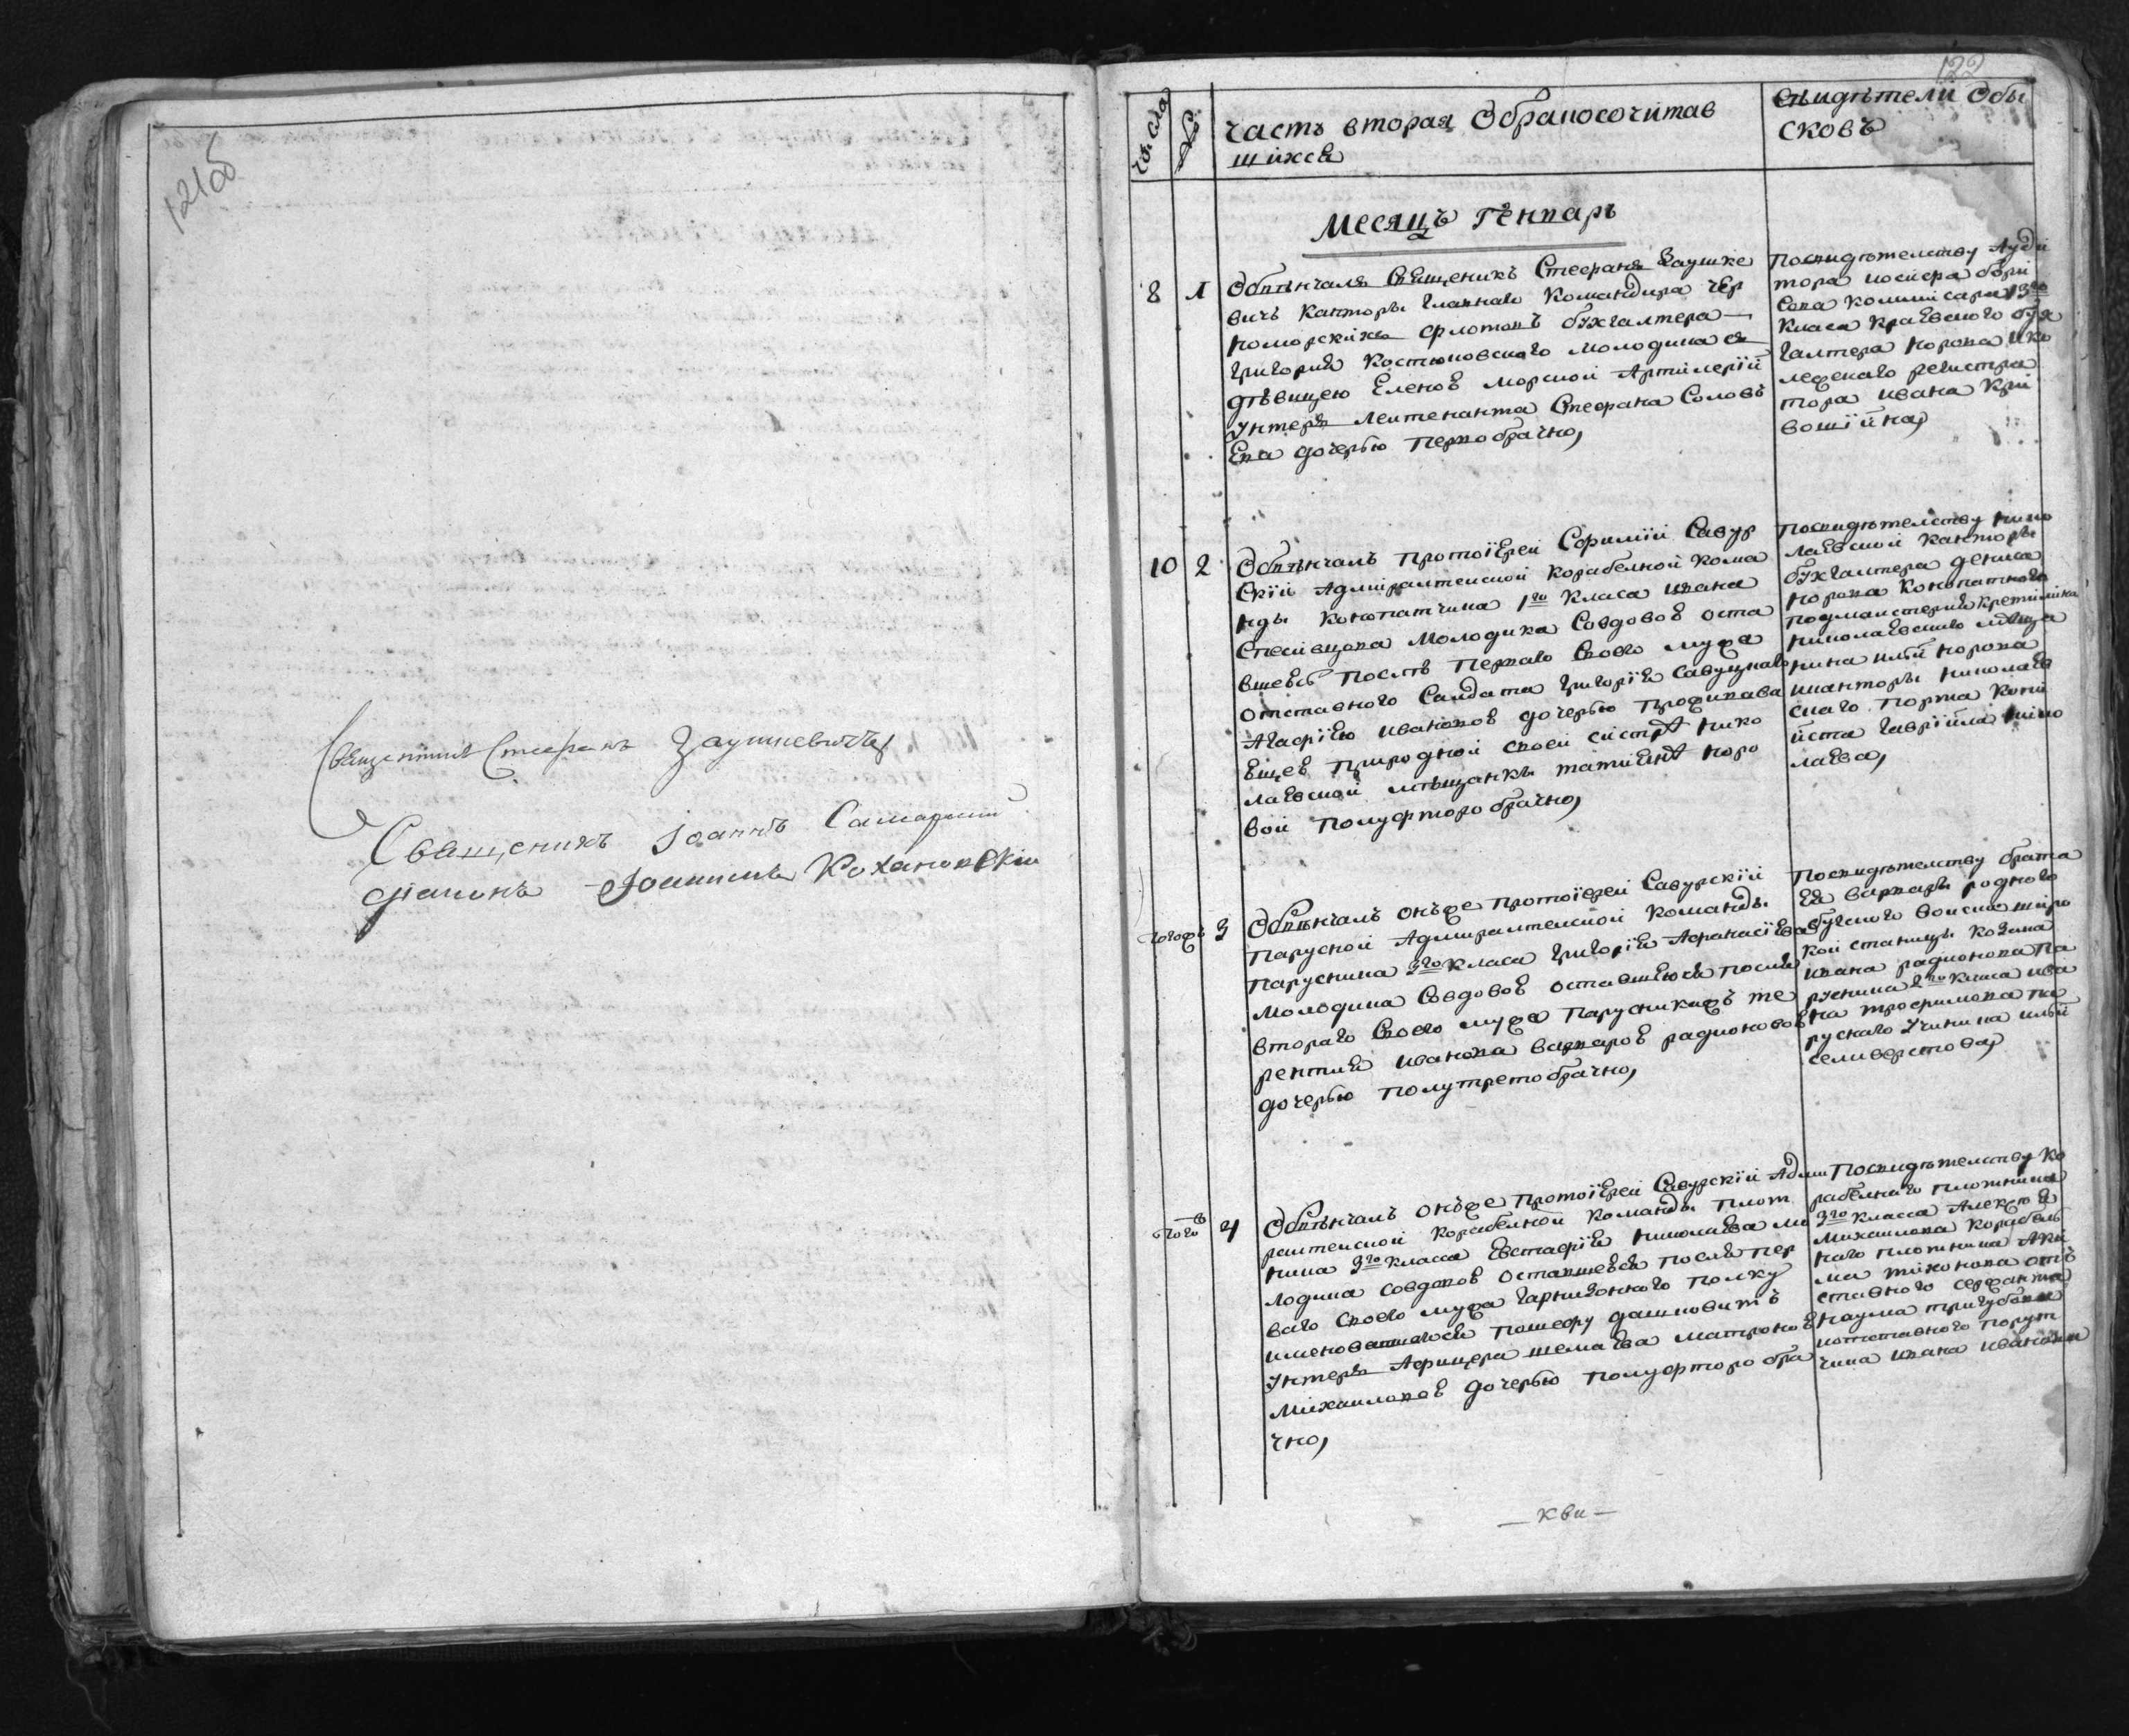 121об
Священникъ Стефанъ Заушкевичъ
Священикъ Iоаннъ Самарский
Дiаконъ Iоаннъ Кохановскiй
122
Числа
№
часть вторая Обракосочитав
шихся
свидѣтели Обы
сковъ
Месяцъ Генварь
8
1
Обвѣнчалъ Священикъ Стефанъ Заушке
вичь Канторы Главнаго Командира чер
номорскихъ флотовъ бухгалтера
Григорiя Костюковскаго Молодика съ
дѣвицею Еленоѣ Морской Артилерiи
Унтеръ Леитенанта Стефана Соловъ
Ева дочерью Первобрачно,
Посвидѣтелству Ауди
тора иосифа бори
сова Комиисара 13го
Класа Краевского бух
галтера
регистра
тора ивана Кри
вошiина,
10
2
Обвѣнчалъ протоiерей Софилий Савур
скiй Адмиралтеиской Корабелной Кома
нды Конопатчика 1го Класа ивана
Спесивцова Молодика Совдовоѣ оста
вшеѣся Послѣ Перваго Своего мужа
отставного Салдата Григорiя Савуцкаго
Агафiею ивановоѣ дочерью
природной своей систрѣ Нико
лаевской мѣщанкѣ татиянѣ Норо
вой Полуфторобрачно,
Посвидѣтелству Нико
лаевской Канторы
бухгалтера дениса
Норова Конопатного
подмаистерия
Николаевскаго мѣща
нина ильи Норова
ишанторы Николаев
скаго Порта Копи
иста Гаврiила Нико
лаева,
Тогожъ
3
Обвѣнчалъ онъже протоiерей Савурскiй
Парусной Адмиралтеиской Команды
Парусника 3го Класа Григорiя Афанасiева
Молодика Совдовоѣ оставшеюся послѣ
втораго Своего мужа Парусникажъ те
рентия иванова варвароѣ радионовоѣ
дочерью Полутретобрачно,
Посвидѣтелству брата
Ея варвары родного
бугского воиска
кой станицы Козака
ивана радионова па
русника 2го Класа ива
на трофимова па
руснаго Ученика ильи
селиверстова,
Того
4
Обвѣнчалъ онъже Протоiерей Савурскiй Адми
ралтеиской Корабелной Команды Плот
ника 3го класса Евстафiя Николаева мо
лодика совдовоѣ оставшеѣся послѣ пер
ваго своего мужа Гарнизонного Полку
именовавшагося Пошефу дашковитъ
Унтеръ Афицера шемаева матроноѣ
Михаиловоѣ дочерью полуфторобра
чно,
Посвидѣтелству Ко
рабелнаго плотника
3го класса Алексея
Михаилова Корабель
наго плотника Аки
ма тихонова отъ
ставного сержанта
наума
иотставного Порут
чика ивана иванова
кви